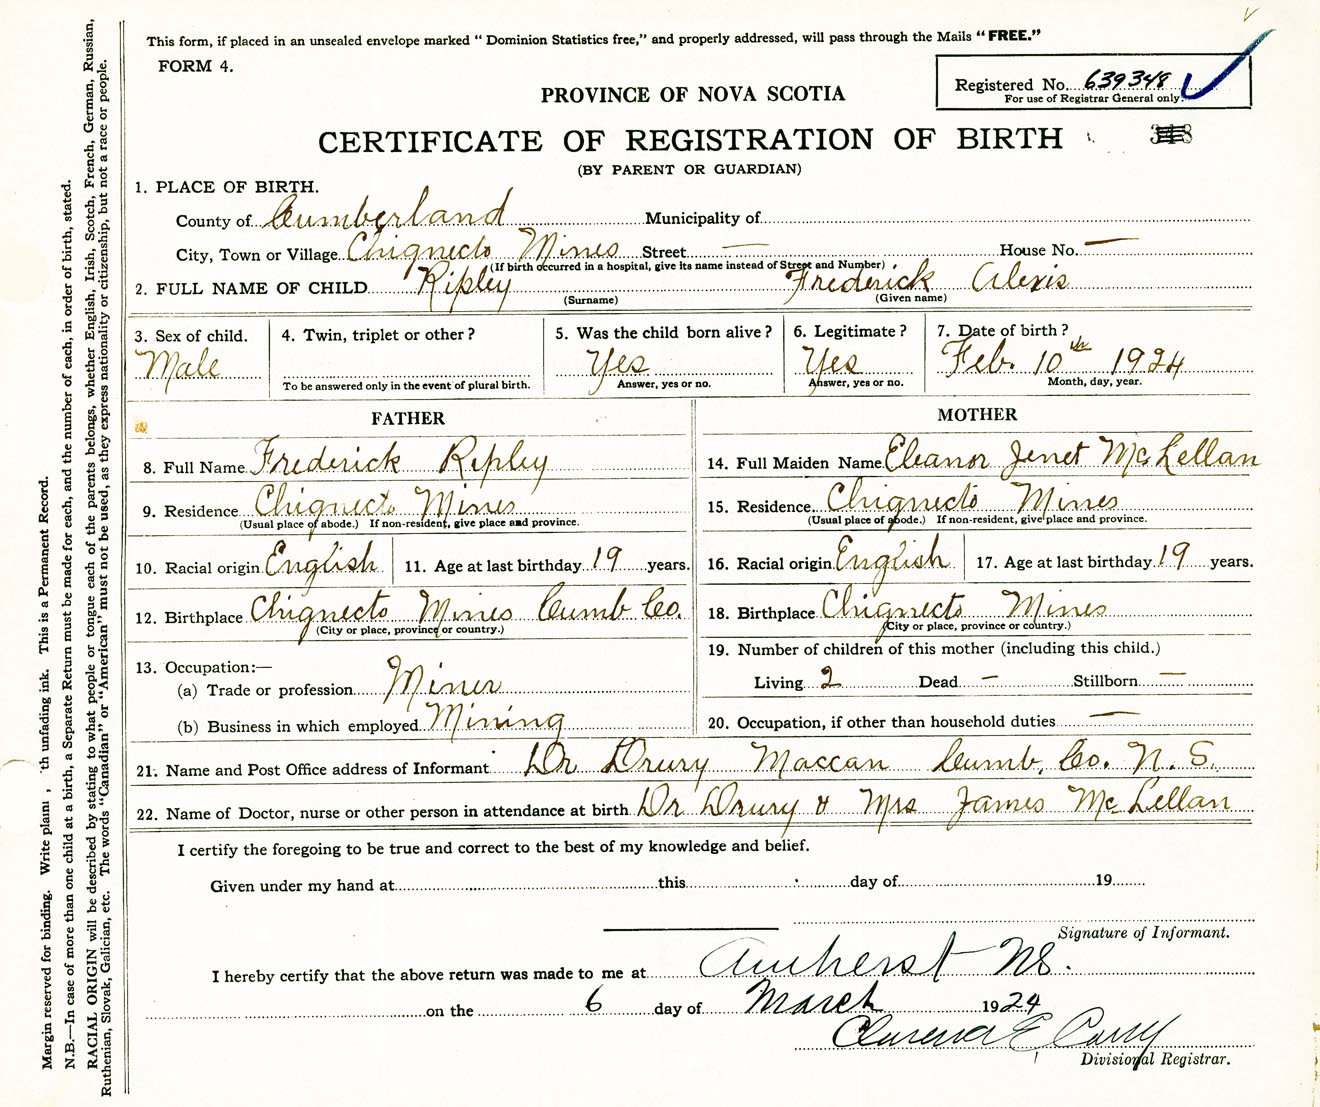 This form, if placed in an unsealed envelope marked "Dominion Statistics free," and properly addressed, will pass through the Mails "FREE."
FORM 4.
Registered No. 639348
For use of Registrar General only.
PROVINCE OF NOVA SCOTIA
CERTIFICATE OF REGISTRATION OF BIRTH
(BY PARENT OR GUARDIAN)
1. PLACE OF BIRTH.
County of Cumberland Municipality of
City, Town or Village Chignecto Mines Street — House No. —
(If birth occurred in a hospital, give its name instead of Street and Number)
2. FULL NAME OF CHILD Ripley Frederick Alexis
(Surname) (Given name)
3. Sex of child. Male
4. Twin, triplet or other?
To be answered only in the event of plural birth.
5. Was the child born alive? Yes
Answer, yes or no.
6. Legitimate? Yes
Answer, yes or no.
7. Date of birth? Feb. 10th 1924
Month, day, year.
FATHER
8. Full Name Frederick Ripley
9. Residence Chignecto Mines
(Usual place of abode.) If non-resident, give place and province.
10. Racial origin English 11. Age at last birthday 19 years.
12. Birthplace Chignecto Mines Cumb Co.
(City or place, province or country.)
13. Occupation:—
(a) Trade or profession Miner
(b) Business in which employed Mining
MOTHER
14. Full Maiden Name Eleanor Jenet McLellan
15. Residence Chignecto Mines
(Usual place of abode.) If non-resident, give place and province.
16. Racial origin English 17. Age at last birthday 19 years.
18. Birthplace Chignecto Mines
(City or place, province or country.)
19. Number of children of this mother (including this child.)
Living 2 Dead — Stillborn —
20. Occupation, if other than household duties —
21. Name and Post Office address of Informant Dr Drury Maccan Cumb. Co. N. S.
22. Name of Doctor, nurse or other person in attendance at birth Dr Drury & Mrs James McLellan
I certify the foregoing to be true and correct to the best of my knowledge and belief.
Given under my hand at this day of 19
Signature of Informant.
I hereby certify that the above return was made to me at Amherst NS.
on the 6 day of March 1924
Clarence E
Divisional Registrar.
Margin reserved for binding. Write plain th unfading ink. This is a Permanent Record.
N.B.—In case of more than one child at a birth, a Separate Return must be made for each, and the number of each, in order of birth, stated.
RACIAL ORIGIN will be described by stating to what people or tongue each of the parents belongs, whether English, Irish, Scotch, French, German, Russian,
Ruthenian, Slovak, Galician, etc. The words "Canadian" or "American" must not be used, as they express nationality or citizenship, but not a race or people.